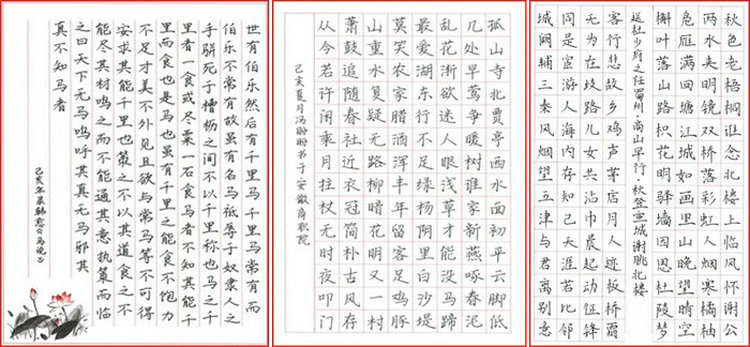 世有伯乐然后有千里马千里马常有而
伯乐不常有故虽有名马祗辱于奴隶人之
手骈死于槽枥之间不以千里称也马之千
里者一食或尽粟一石食马者不知其能千
里而食也是马也虽有千里之能食不饱力
不足才美不外见且欲与常马等不可得
安求其能千里也策之不以其道食之不
能尽其材鸣之而不能通其意执策而临
之曰天下无马呜呼其真无马邪其
真不知马者
己亥年录韩愈《马说》
孤山寺北贾亭西水面初平云脚低
几处早莺争暖树谁家新燕啄春泥
乱花渐欲迷人眼浅草才能没马蹄
最爱湖东行不足绿杨阴里白沙堤
莫笑农家腊酒浑丰年留客足鸡豚
山重水复疑无路柳暗花明又一村
萧鼓追随春社近衣冠简朴古风存
从今若许闲乘月拄杖无时夜叩门
己亥夏月冯盼盼书于安徽商职院
城阙辅三秦风烟望五津与君离别意
同是宦游人海内存知己天涯若比邻
无为在歧路儿女共沾巾晨起动征铎
客行悲故乡鸡声茅店月人迹板桥霜
送杜少府之任蜀州·商山早行·秋登宣城谢朓北楼
槲叶落山路枳花明驿墙因思杜陵梦
凫雁满回塘江城如画里山晚望晴空
两水夹明镜双桥落彩虹人烟寒橘柚
秋色老梧桐谁念北楼上临风怀谢公